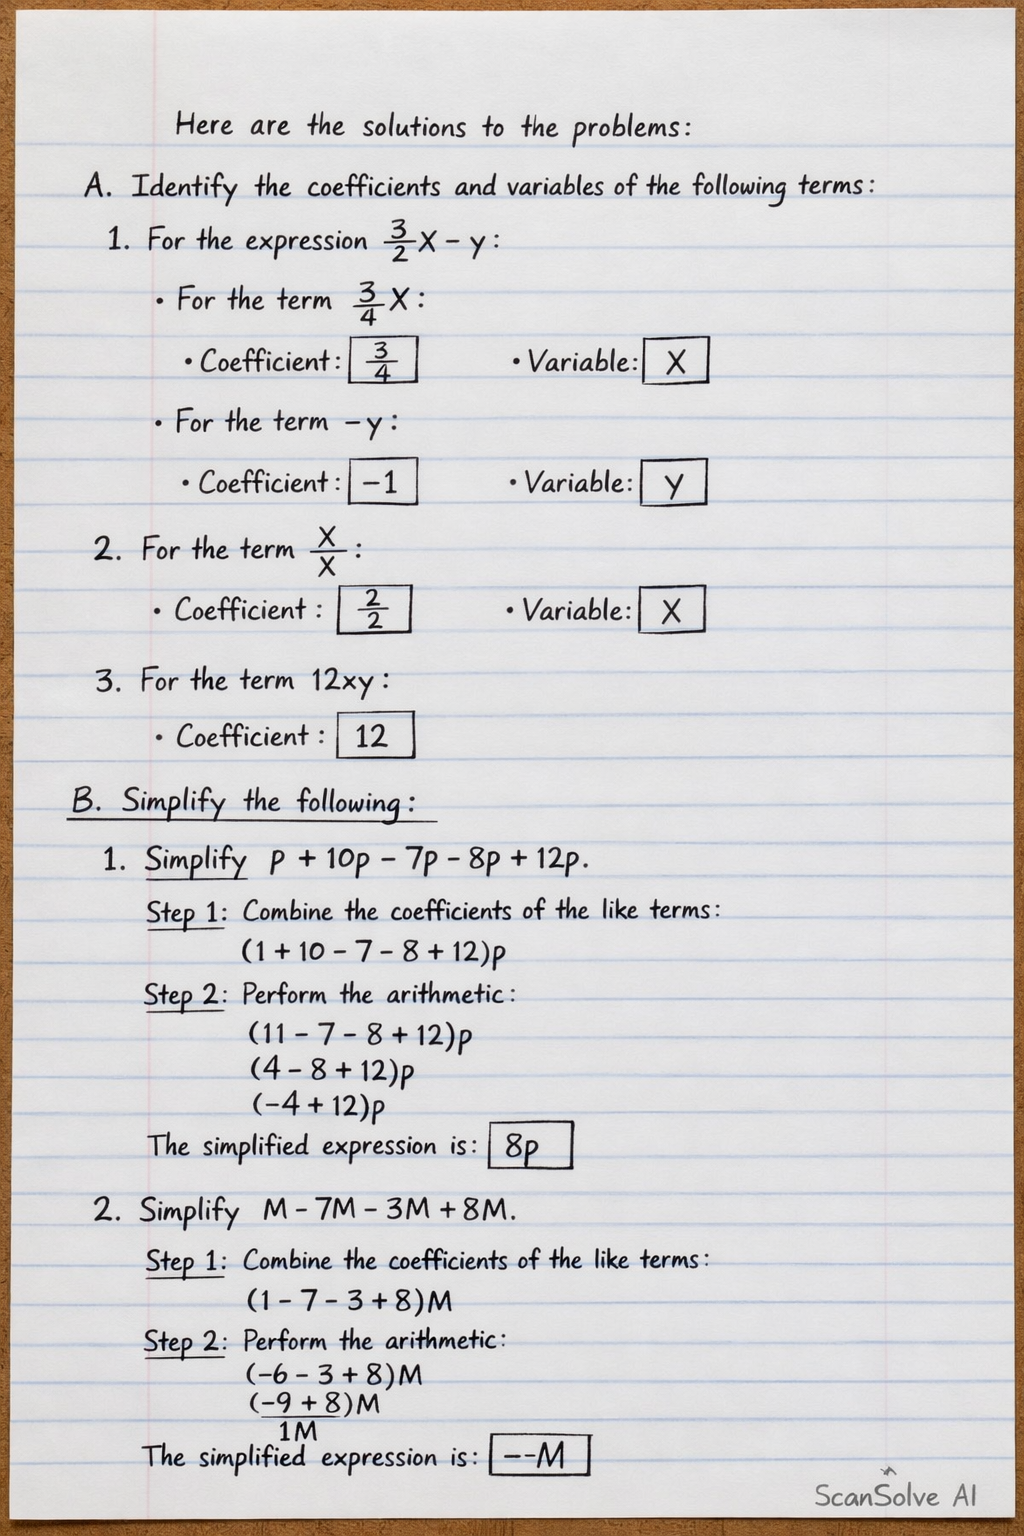 Here are the solutions to the problems:
A. Identify the coefficients and variables of the following terms:
1. For the expression 3/2 X - y:
• For the term 3/4 X:
• Coefficient: 3/4 • Variable: X
• For the term -y:
• Coefficient: -1 • Variable: y
2. For the term X/X:
• Coefficient: 2/2 • Variable: X
3. For the term 12xy:
• Coefficient: 12
B. Simplify the following:
1. Simplify p + 10p - 7p - 8p + 12p.
Step 1: Combine the coefficients of the like terms:
(1 + 10 - 7 - 8 + 12)p
Step 2: Perform the arithmetic:
(11 - 7 - 8 + 12)p
(4 - 8 + 12)p
(-4 + 12)p
The simplified expression is: 8p
2. Simplify M - 7M - 3M + 8M.
Step 1: Combine the coefficients of the like terms:
(1 - 7 - 3 + 8)M
Step 2: Perform the arithmetic:
(-6 - 3 + 8)M
(-9 + 8)M
1M
The simplified expression is: --M
ScanSolve AI